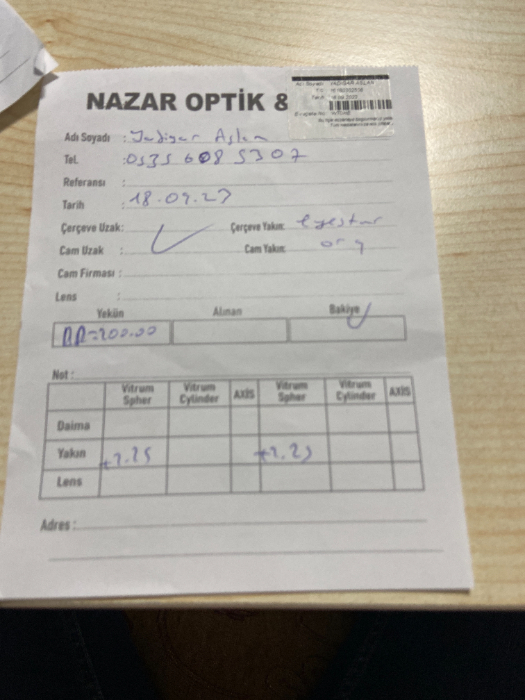 NAZAR OPTİK &
YADİGAR ASLAN
Adı Soyadı : Yadigar Aslan
Tel. : 0535 608 5307
Referansı :
Tarih : 18.09.23
Çerçeve Uzak: Çerçeve Yakın:
Cam Uzak : Cam Yakın: org
Cam Firması :
Lens :
Yekün Alınan Bakiye
Not :
Vitrum Spher Vitrum Cylinder AXİS Vitrum Spher Vitrum Cylinder AXİS
Daima
Yakın +2.25 +2.25
Lens
Adres :